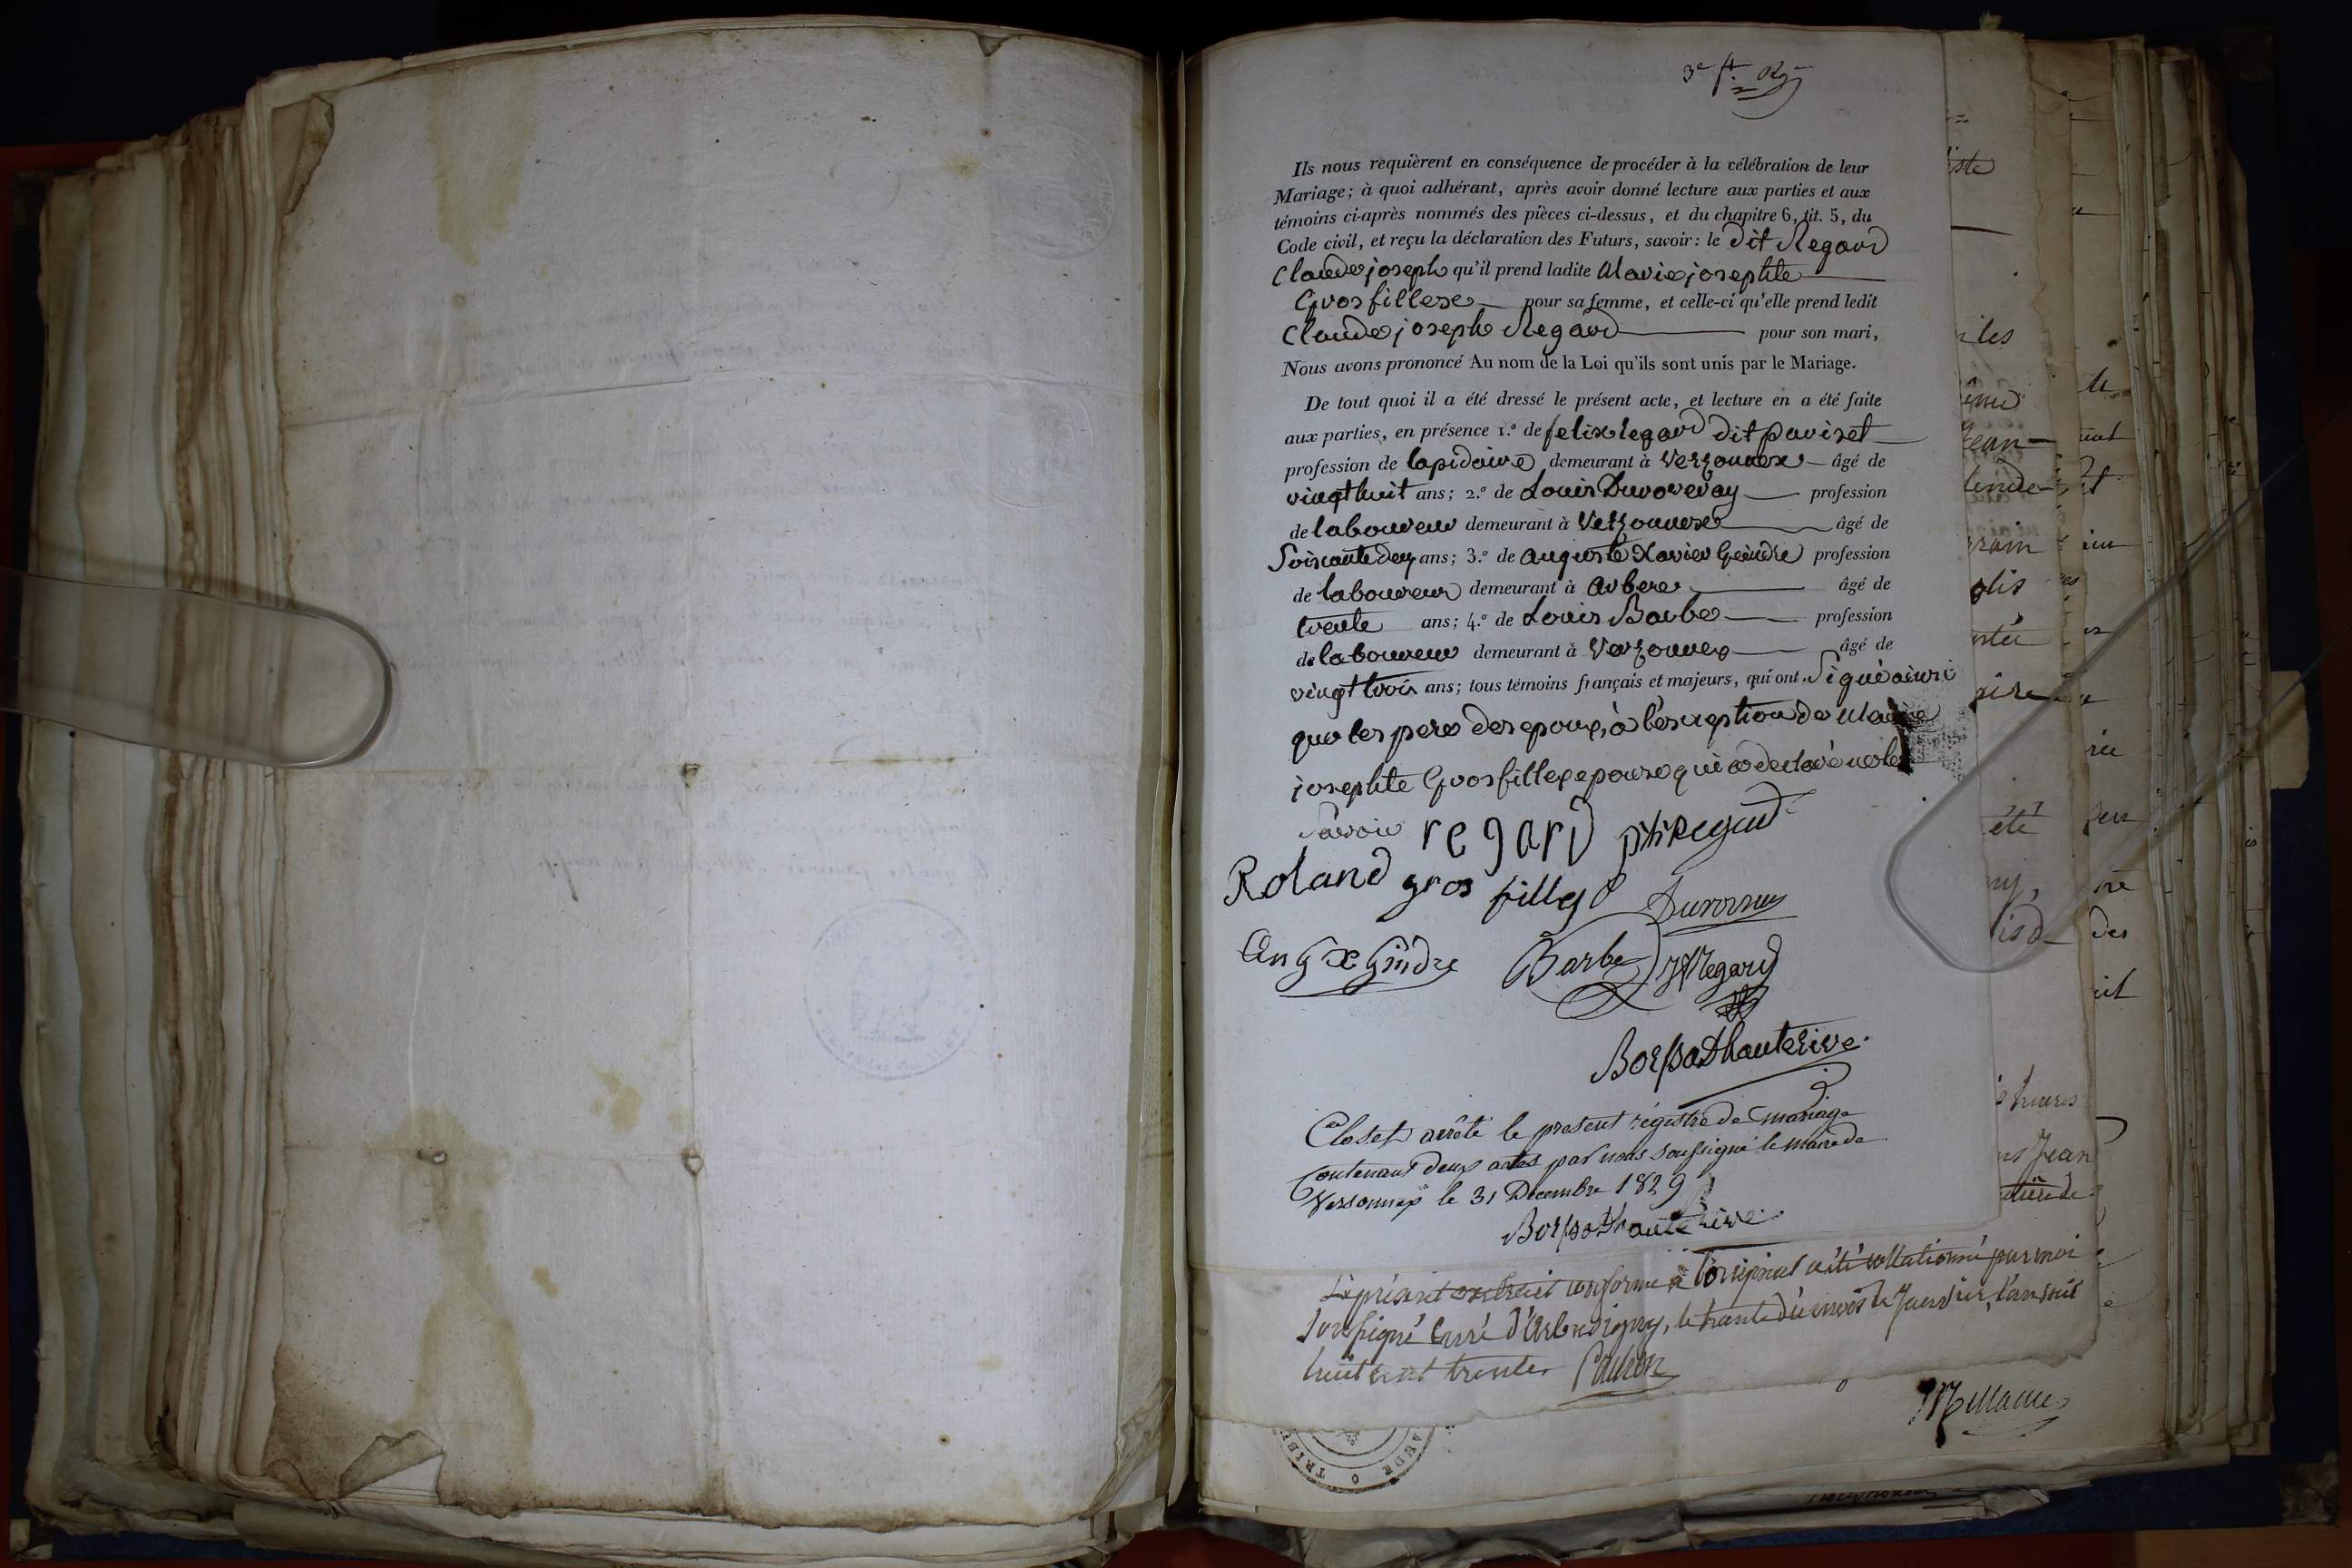 3e ft. Rg
Ils nous requièrent en conséquence de procéder à la célébration de leur
Mariage; à quoi adhérant, après avoir donné lecture aux parties et aux
témoins ci-après nommés des pièces ci-dessus, et du chapitre 6, tit. 5, du
Code civil, et reçu la déclaration des Futurs, savoir: le dit Regard
Claude joseph qu'il prend ladite Marie josephte
Grosfillex pour sa femme, et celle-ci qu'elle prend ledit
Claude joseph Regard pour son mari,
Nous avons prononcé Au nom de la Loi qu'ils sont unis par le Mariage.
De tout quoi il a été dressé le présent acte, et lecture en a été faite
aux parties, en présence 1.º de felix regard dit pariset
profession de lapidaire demeurant à Verzonnex âgé de
vingt huit ans; 2.º de Louis profession
de laboureur demeurant à Vetzonnex âgé de
Soixante deux ans; 3.º de auguste Xavier Geindre profession
de laboureur demeurant à arbere âgé de
trente ans; 4.º de Louis Barbe profession
de laboureur demeurant à Verzonnex âgé de
vingt trois ans; tous témoins français et majeurs, qui ont Signé ainsi
que les pere des epoux, à l'exception de Marie
josephte Grosfillex epouse qui a declaré ne le
Savoir regard Regard
Roland gros filleg
Aug X Gindre Barbe Regard
BorssatDhauterive.
Clos et arrêté le present régistre de mariage
Contenant deux actes par nous soussigné le maire de
Versonnex le 31 Décembre 1829
BorssatDhauterive
Le présent extrait conforme à l'original a été collationné par moi
soussigné Curé d'Arbusigny, le trente du mois de Janvier, l'an mil
huit cent trente.
iste
iles
Jean
rain
été
heures
Jean
des
TRIBU